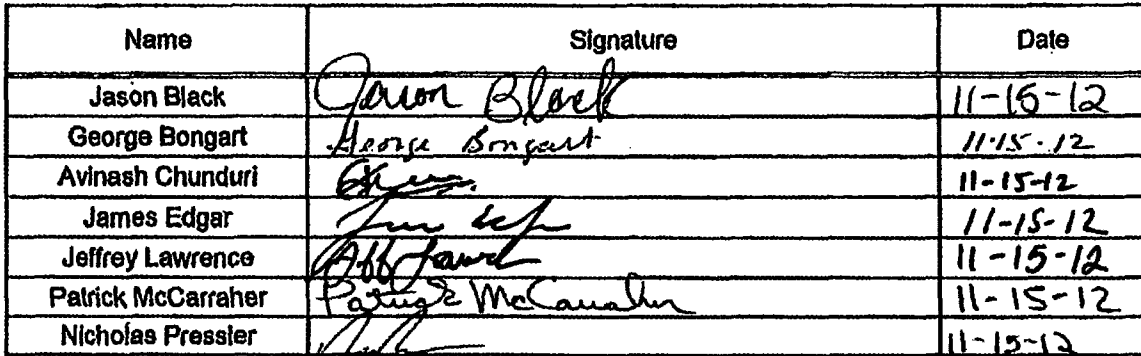 Name Signature Date
Jason Black Jason Black 11-15-12
George Bongart George Bongart 11.15.12
Avinash Chunduri 11-15-12
James Edgar 11-15-12
Jeffrey Lawrence Jeff Lawrence 11-15-12
Patrick McCarraher Patrick McCarraher 11-15-12
Nicholas Pressler 11-15-12